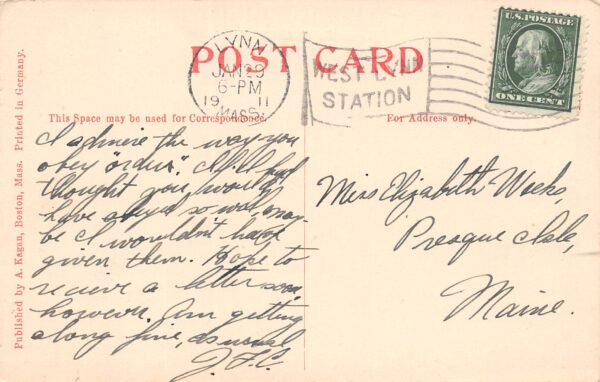 LYNN
JAN 29
6-PM
19 11
MASS.
POST CARD
WEST LYNN
STATION
U.S. POSTAGE
ONE CENT
This Space may be used for Correspondence.
For Address only.
Published by A. Kagan, Boston, Mass. Printed in Germany.
I admire the way you
obey "orders". If I had
thought you would
have obeyed so well, may-
be I wouldn't have
given them. Hope to
recieve a letter soon
however. Am getting
along fine, as usual
J.F.C.
Miss Elizabeth Weeks,
Presque Isle,
Maine.